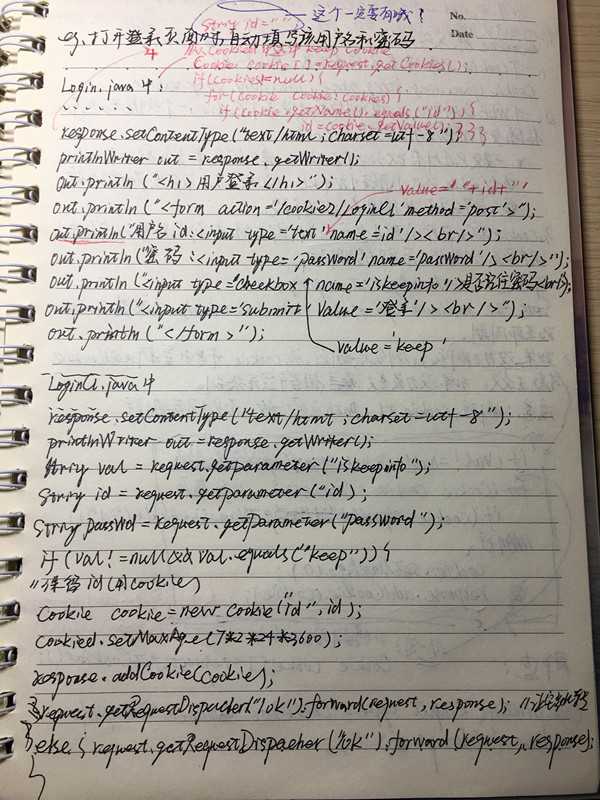 这个一定要有哦?
String id=""
No.
Date
eg.打开登录页面时,自动填写该用户名和密码
从Cookie中
keep cookie
Cookie cookies[]=request.getCookies();
if(cookies!=null){
Login.java中:
for(Cookie cookie:cookies){
......
if(cookie.getName().equals("id"){
id=cookie.getValue();}}}
response.setContentType("text/html;charset=utf-8");
printlnWriter out = response.getWriter();
out.println("<h1>用户登录</h1>");
value='"+id+"'
out.println("<form action='/cookie2/LoginCl' method='post'>");
out.println("用户名id:<input type='text' name='id'/><br/>");
out.println("密码:<input type='password' name='password'/><br/>");
out.println("<input type='checkbox' name='iskeepinfo'/>是否记住密码<br/>");
out.println("<input type='submit' value='登录'/><br/>");
out.println("</form>");
value='keep'
LoginCl.java中
response.setContentType("text/html;charset=utf-8");
printlnWriter out=response.getWriter();
String val = request.getparameter("iskeepinfo");
String id = request.getparameter("id);
String passWd=request.getparameter("password");
if(val!=null&&val.equals("keep")){
//保留id(用cookie)
Cookie cookie=new Cookie("id",id);
Cookied.setMaxAge(7*2*24*3600);
response.addCookie(cookie);
}request.getRequestDispacher("ok").forward(request,response);
}else{request.getRequestDispacher("ok").forward(request,response);
}